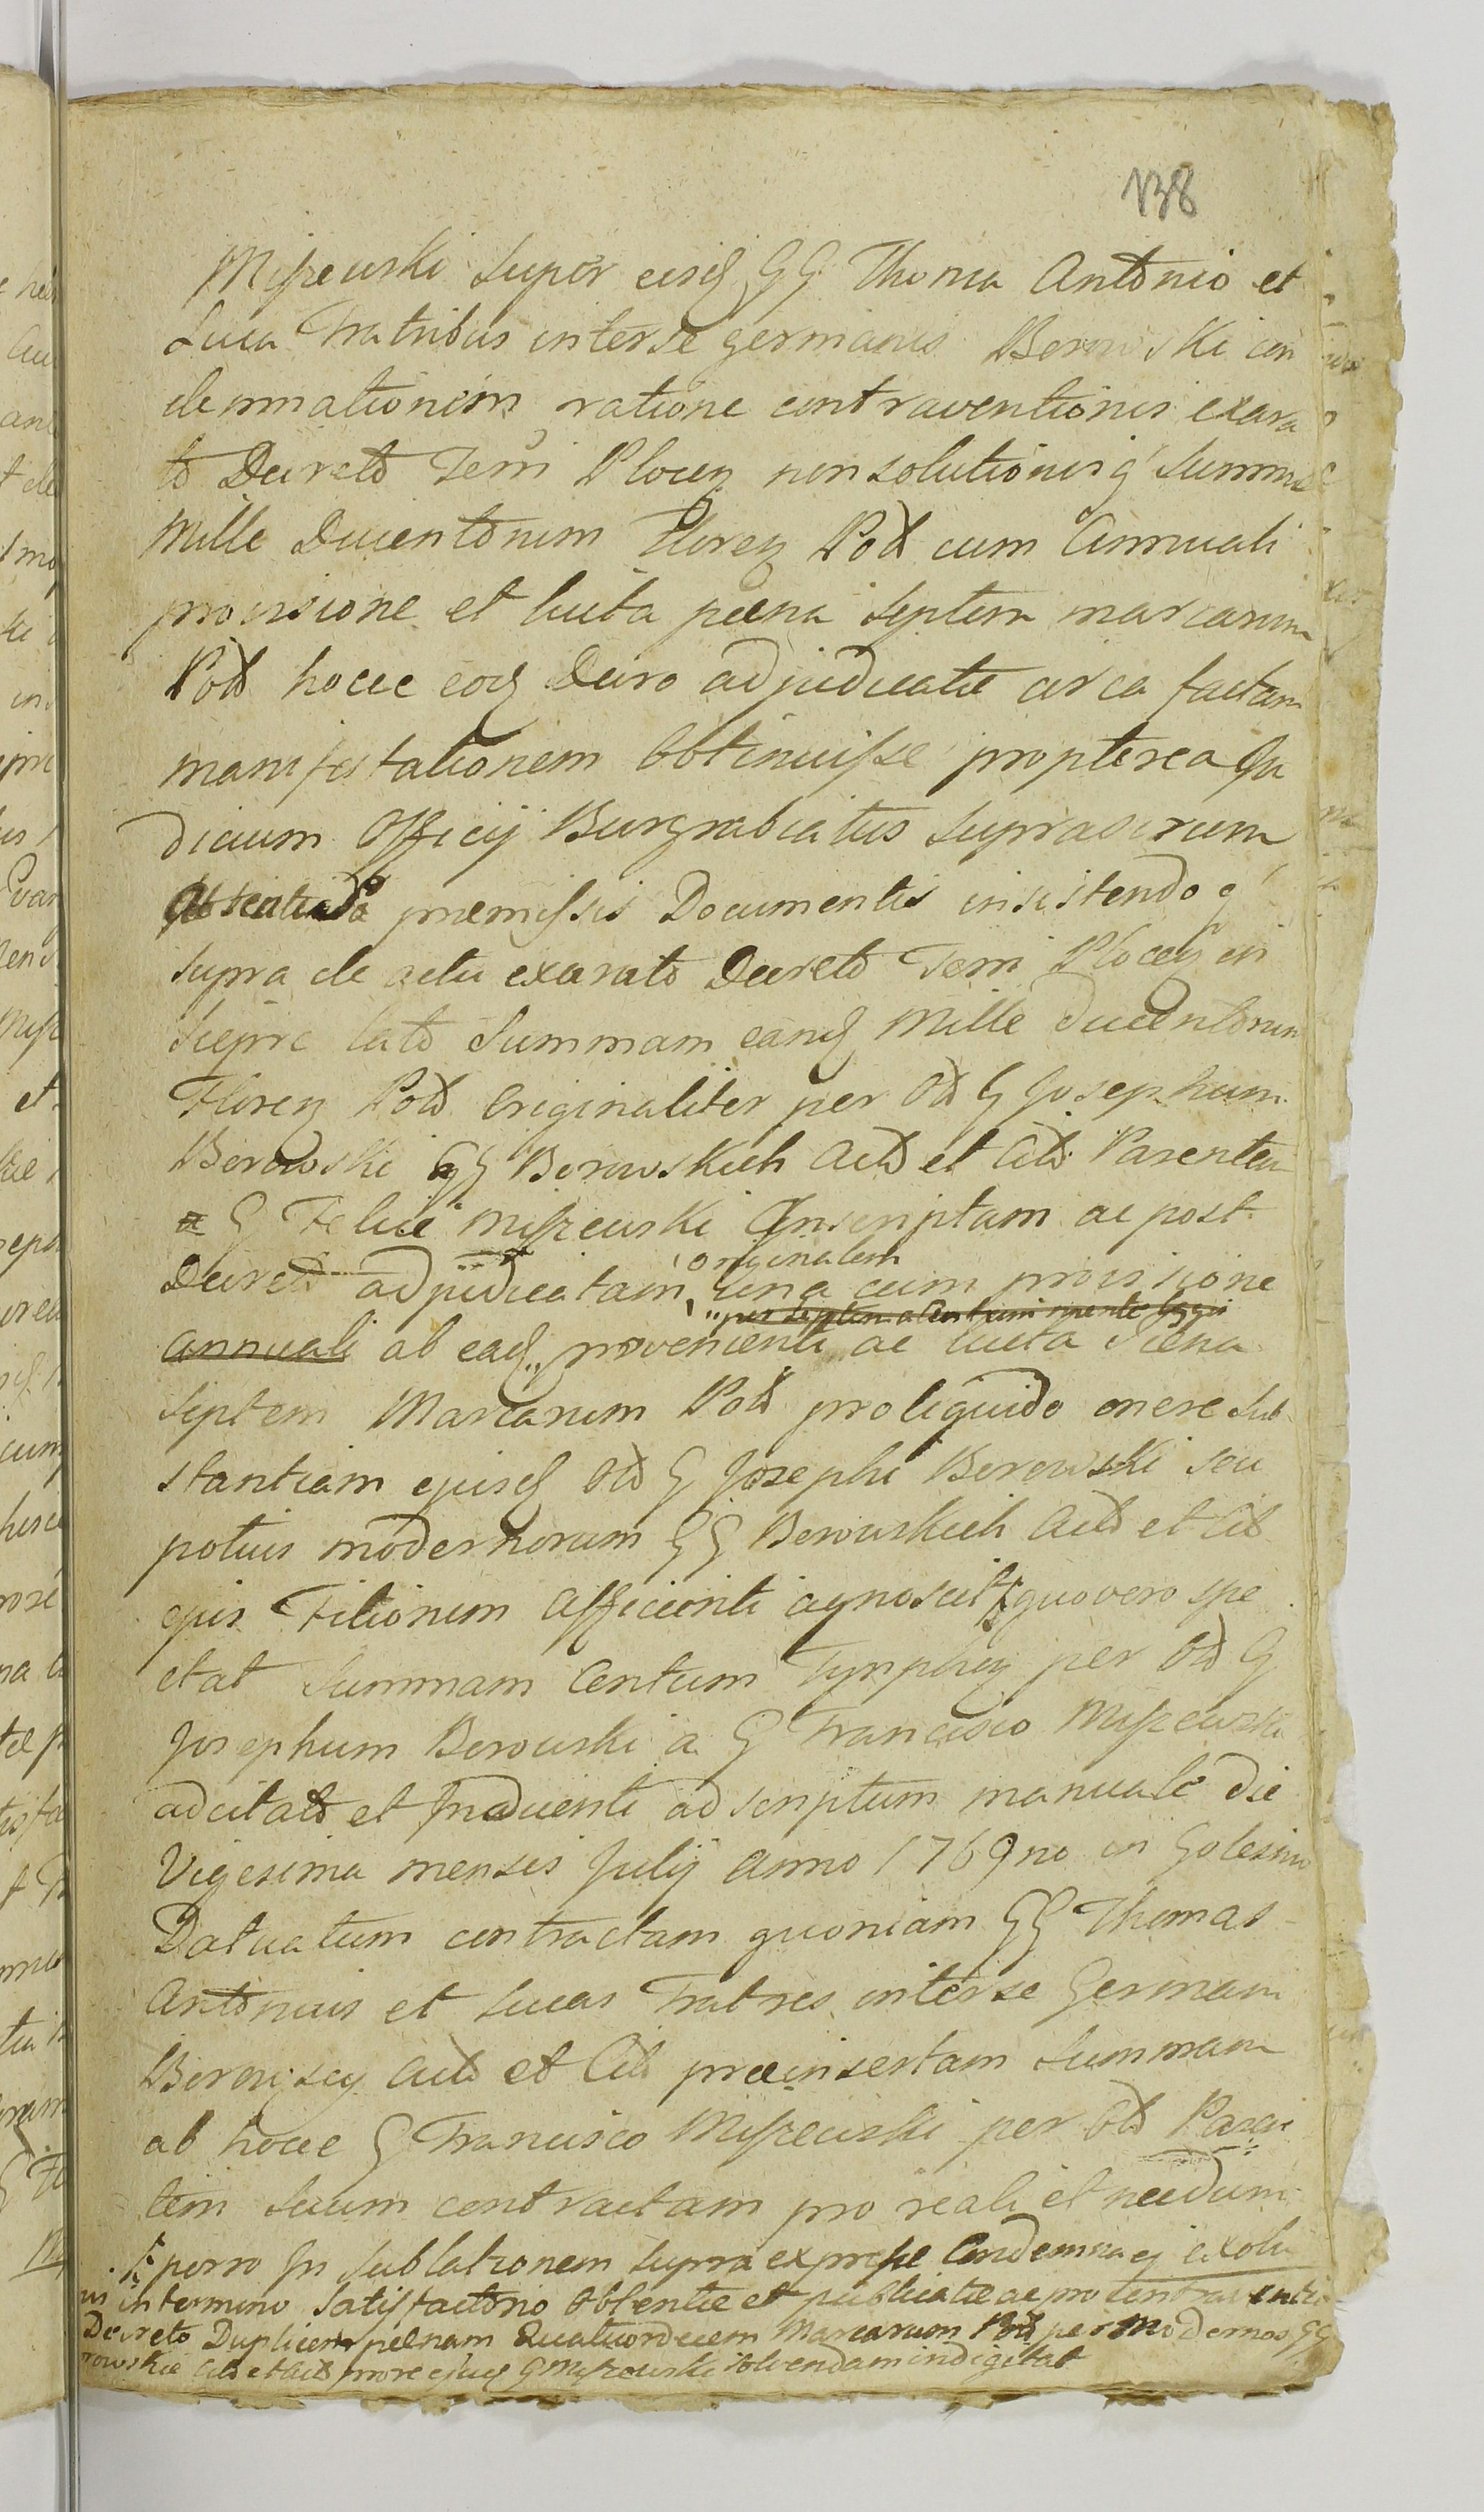 138
Miszewski super eisd GG Thoma Antonio et
Luca Fratribus interse germanis Borowski con
demnationem ratione contraventionis exara
to Decreto Terri Plocen non solutionis q summæ
Mille Ducentorum Floren Pol cum Annuali
provisione et luita pæna septem marcarum
Pol hocce eod Decro adjudicatæ circa factam
manifestationem obtinuisse propterea Ju
dicium Officij Burgrabiatus suprascrum
præmissis Documentis insistendo q
supra de actu exarato Decreto Terri Plocen in
Sieprc lato Summam eand Mille Ducentorum
Floren Pol Originaliter per Od G Josephum
Borowski GG Borowskich Act et Cit Parentem
G Felici Miszewski Inscriptam ac post
Decret adjudicatam originalem una cum provisione
per septem a Centum
annuali ab ead provenienti ac luita Pæna
septem Marcarum Pol pro liquido onere sub
stantiam ejusd Od G Josephi Borowski seu
potius modernorum GG Borowskich Act et Cit
ejus Filiorum afficienti agnoscit quo vero spe
ctat Summam Centum Tynphen per Od G
Josephum Borowski a G Francisco Miszewski
adcitato et Inducenti ad scriptum manuale die
Vigesima mensis Julij Anno 1769no in Golesino
Datuatum contractam quoniam GG Thomas
Antonius et Lucas Fratres interse Germani
Borowscy Act et Cit præinsertam Summam
ab hocce G Francisco Miszewski per Od Paren
tem suum contractam pro reali et necdum
porro In sublationem supra expresse Condemnaej exolu
in termino satisfactorio Obtentæ et publicatæ ac pro contraventi
Decreto Duplicem pœnam Quatuordecem Marcarum Pol per Modernos GG
rowskie Cit et Act prore ejusd G Miszewski solvendam indigitat